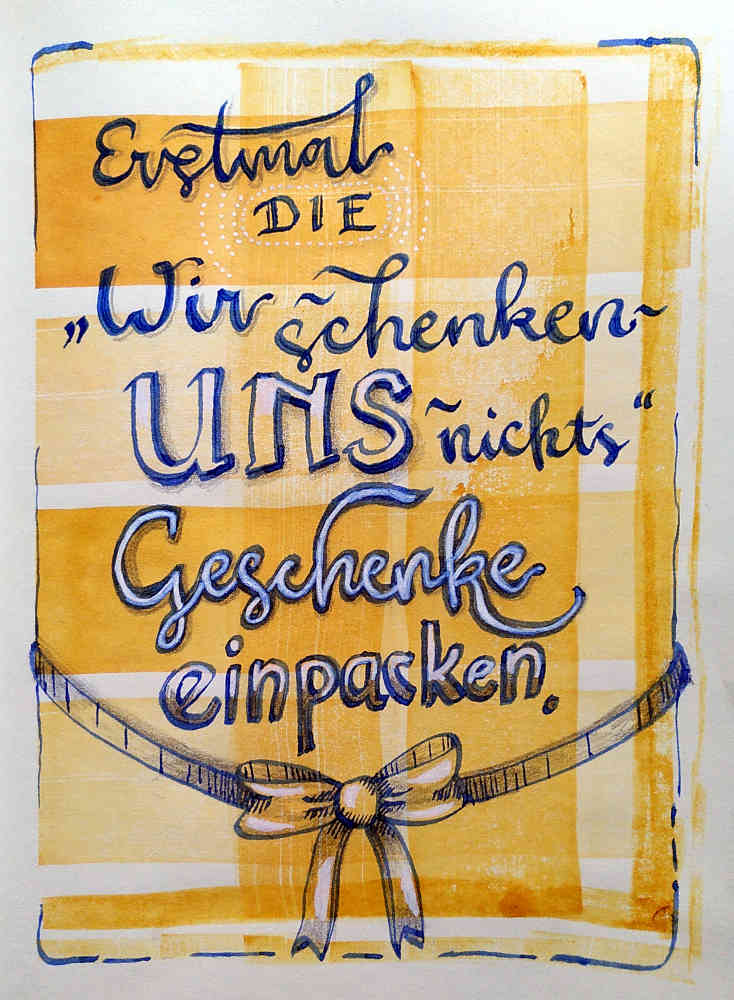 Erstmal
DIE
„Wir schenken
UNS nichts“
Geschenke
einpacken.